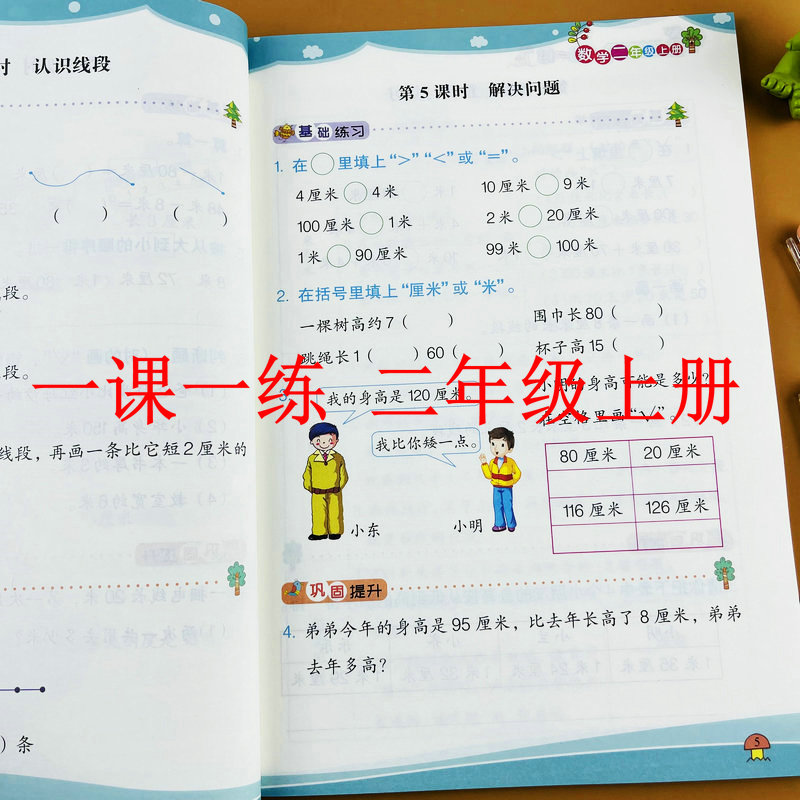 时 认识线段
( ) ( )
段。
段。
线段，再画一条比它短2厘米的
) 条
数学二年级上册
第5课时 解决问题
基础练习
1. 在○里填上“>”“<”或“=”。
4厘米○4米 10厘米○9米
100厘米○1米 2米○20厘米
1米○90厘米 99米○100米
2. 在括号里填上“厘米”或“米”。
一棵树高约7( ) 围巾长80( )
跳绳长1( )60( ) 杯子高15( )
一课一练 二年级上册
3.
我的身高是120厘米。
小明的身高可能是多少?
在空格里画“√”。
我比你矮一点。
小东 小明
80厘米 20厘米
116厘米 126厘米
巩固提升
4. 弟弟今年的身高是95厘米，比去年长高了8厘米，弟弟
去年多高?
5